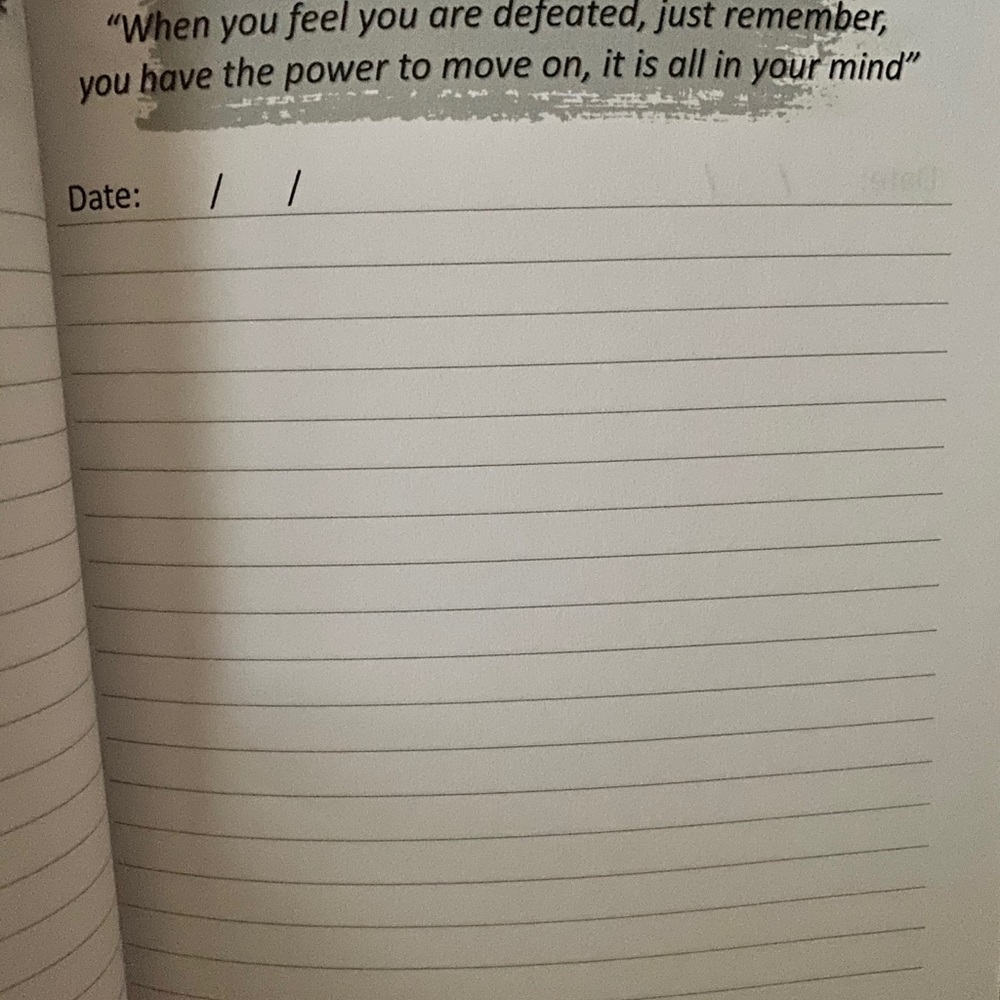 “When you feel you are defeated, just remember,
you have the power to move on, it is all in your mind”
Date: / /